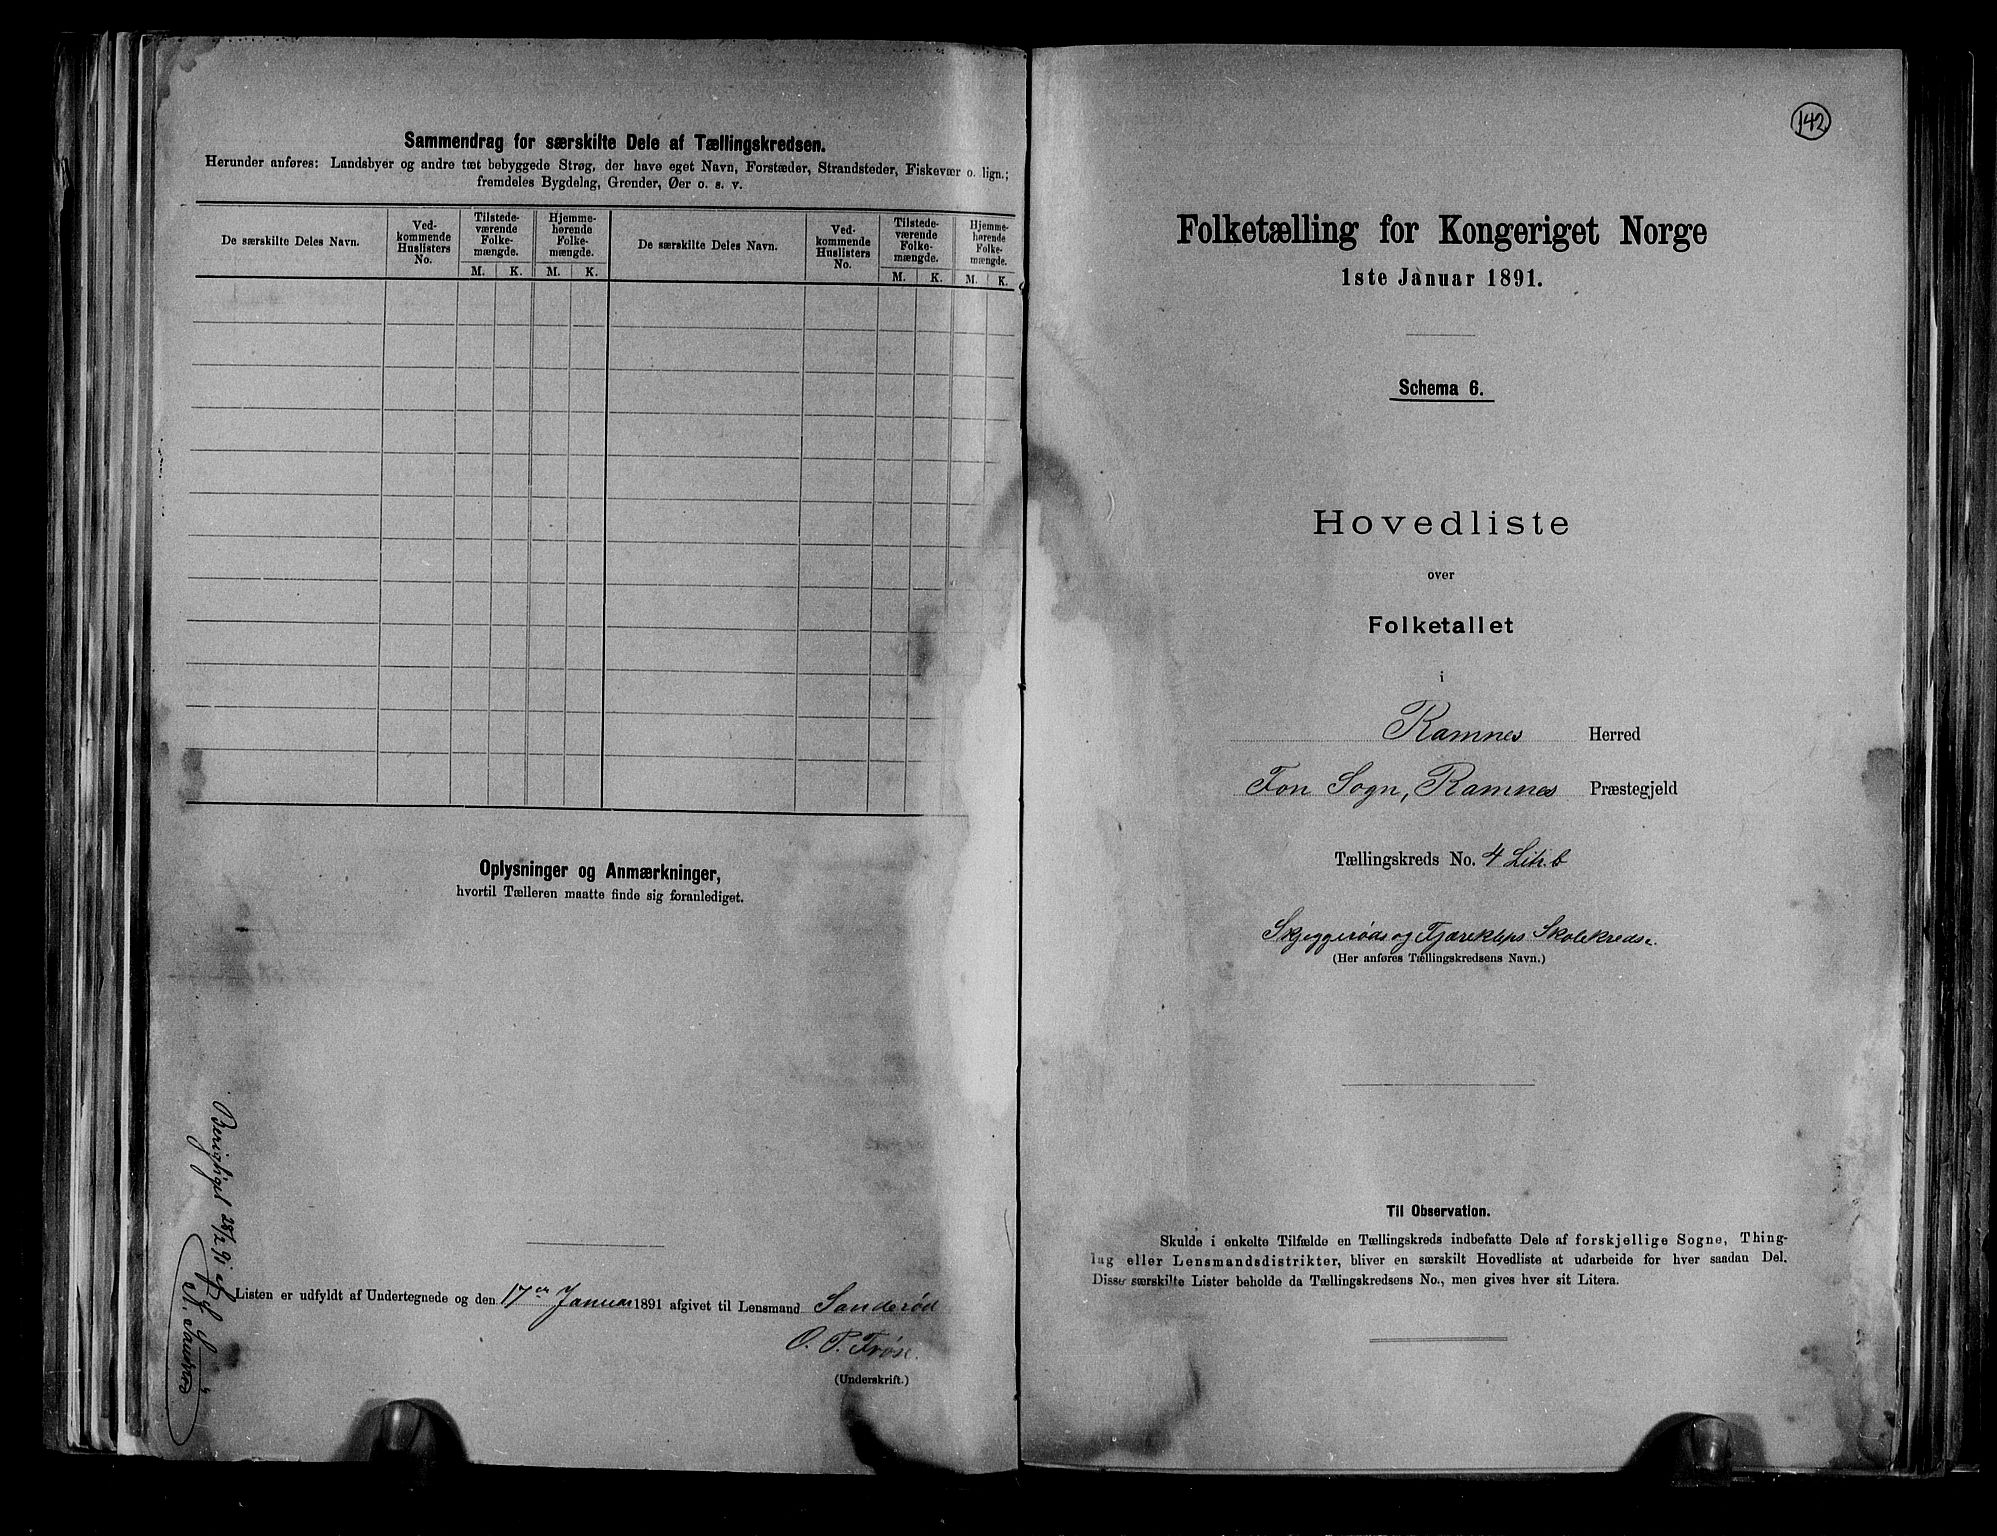 Sammendrag for særskilte Dele af Tællingskredsen.
Herunder anføres: Landsbyer og andre tæt bebyggede Strøg, der have eget Navn, Forstæder, Strandsteder, Fiskevær o. lign.;
fremdeles Bygdelag, Grender, Øer o. s. v.
De særskilte Deles Navn.
Ved-
kommende
Huslisters
No.
Tilstede-
værende
Folke-
mængde.
Hjemme-
hørende
Folke-
mængde.
M. K. M. K.
De særskilte Deles Navn.
Ved-
kommende
Huslisters
No.
Tilstede-
værende
Folke-
mængde.
Hjemme-
hørende
Folke-
mængde.
M. K. M. K.
Oplysninger og Anmærkninger,
hvortil Tælleren maatte finde sig foranlediget.
Berigtiget 28/2 91
Listen er udfyldt af Undertegnede og den 17de Januar 1891 afgivet til Lensmand Sanderød
O. P.
(Underskrift.)
142
Folketælling for Kongeriget Norge
1ste Januar 1891.
Schema 6.
Hovedliste
over
Folketallet
i
Ramnes Herred
Fon Sogn, Ramnes Præstegjeld
Tællingskreds No. 4 Litr. b
Skjeggerøds og Skolekreds
(Her anføres Tællingskredsens Navn.)
Til Observation.
Skulde i enkelte Tilfælde en Tællingskreds indbefatte Dele af forskjellige Sogne, Thing-
lag eller Lensmandsdistrikter, bliver en særskilt Hovedliste at udarbeide for hver saadan Del.
Disse særskilte Lister beholde da Tællingskredsens No., men gives hver sit Litera.